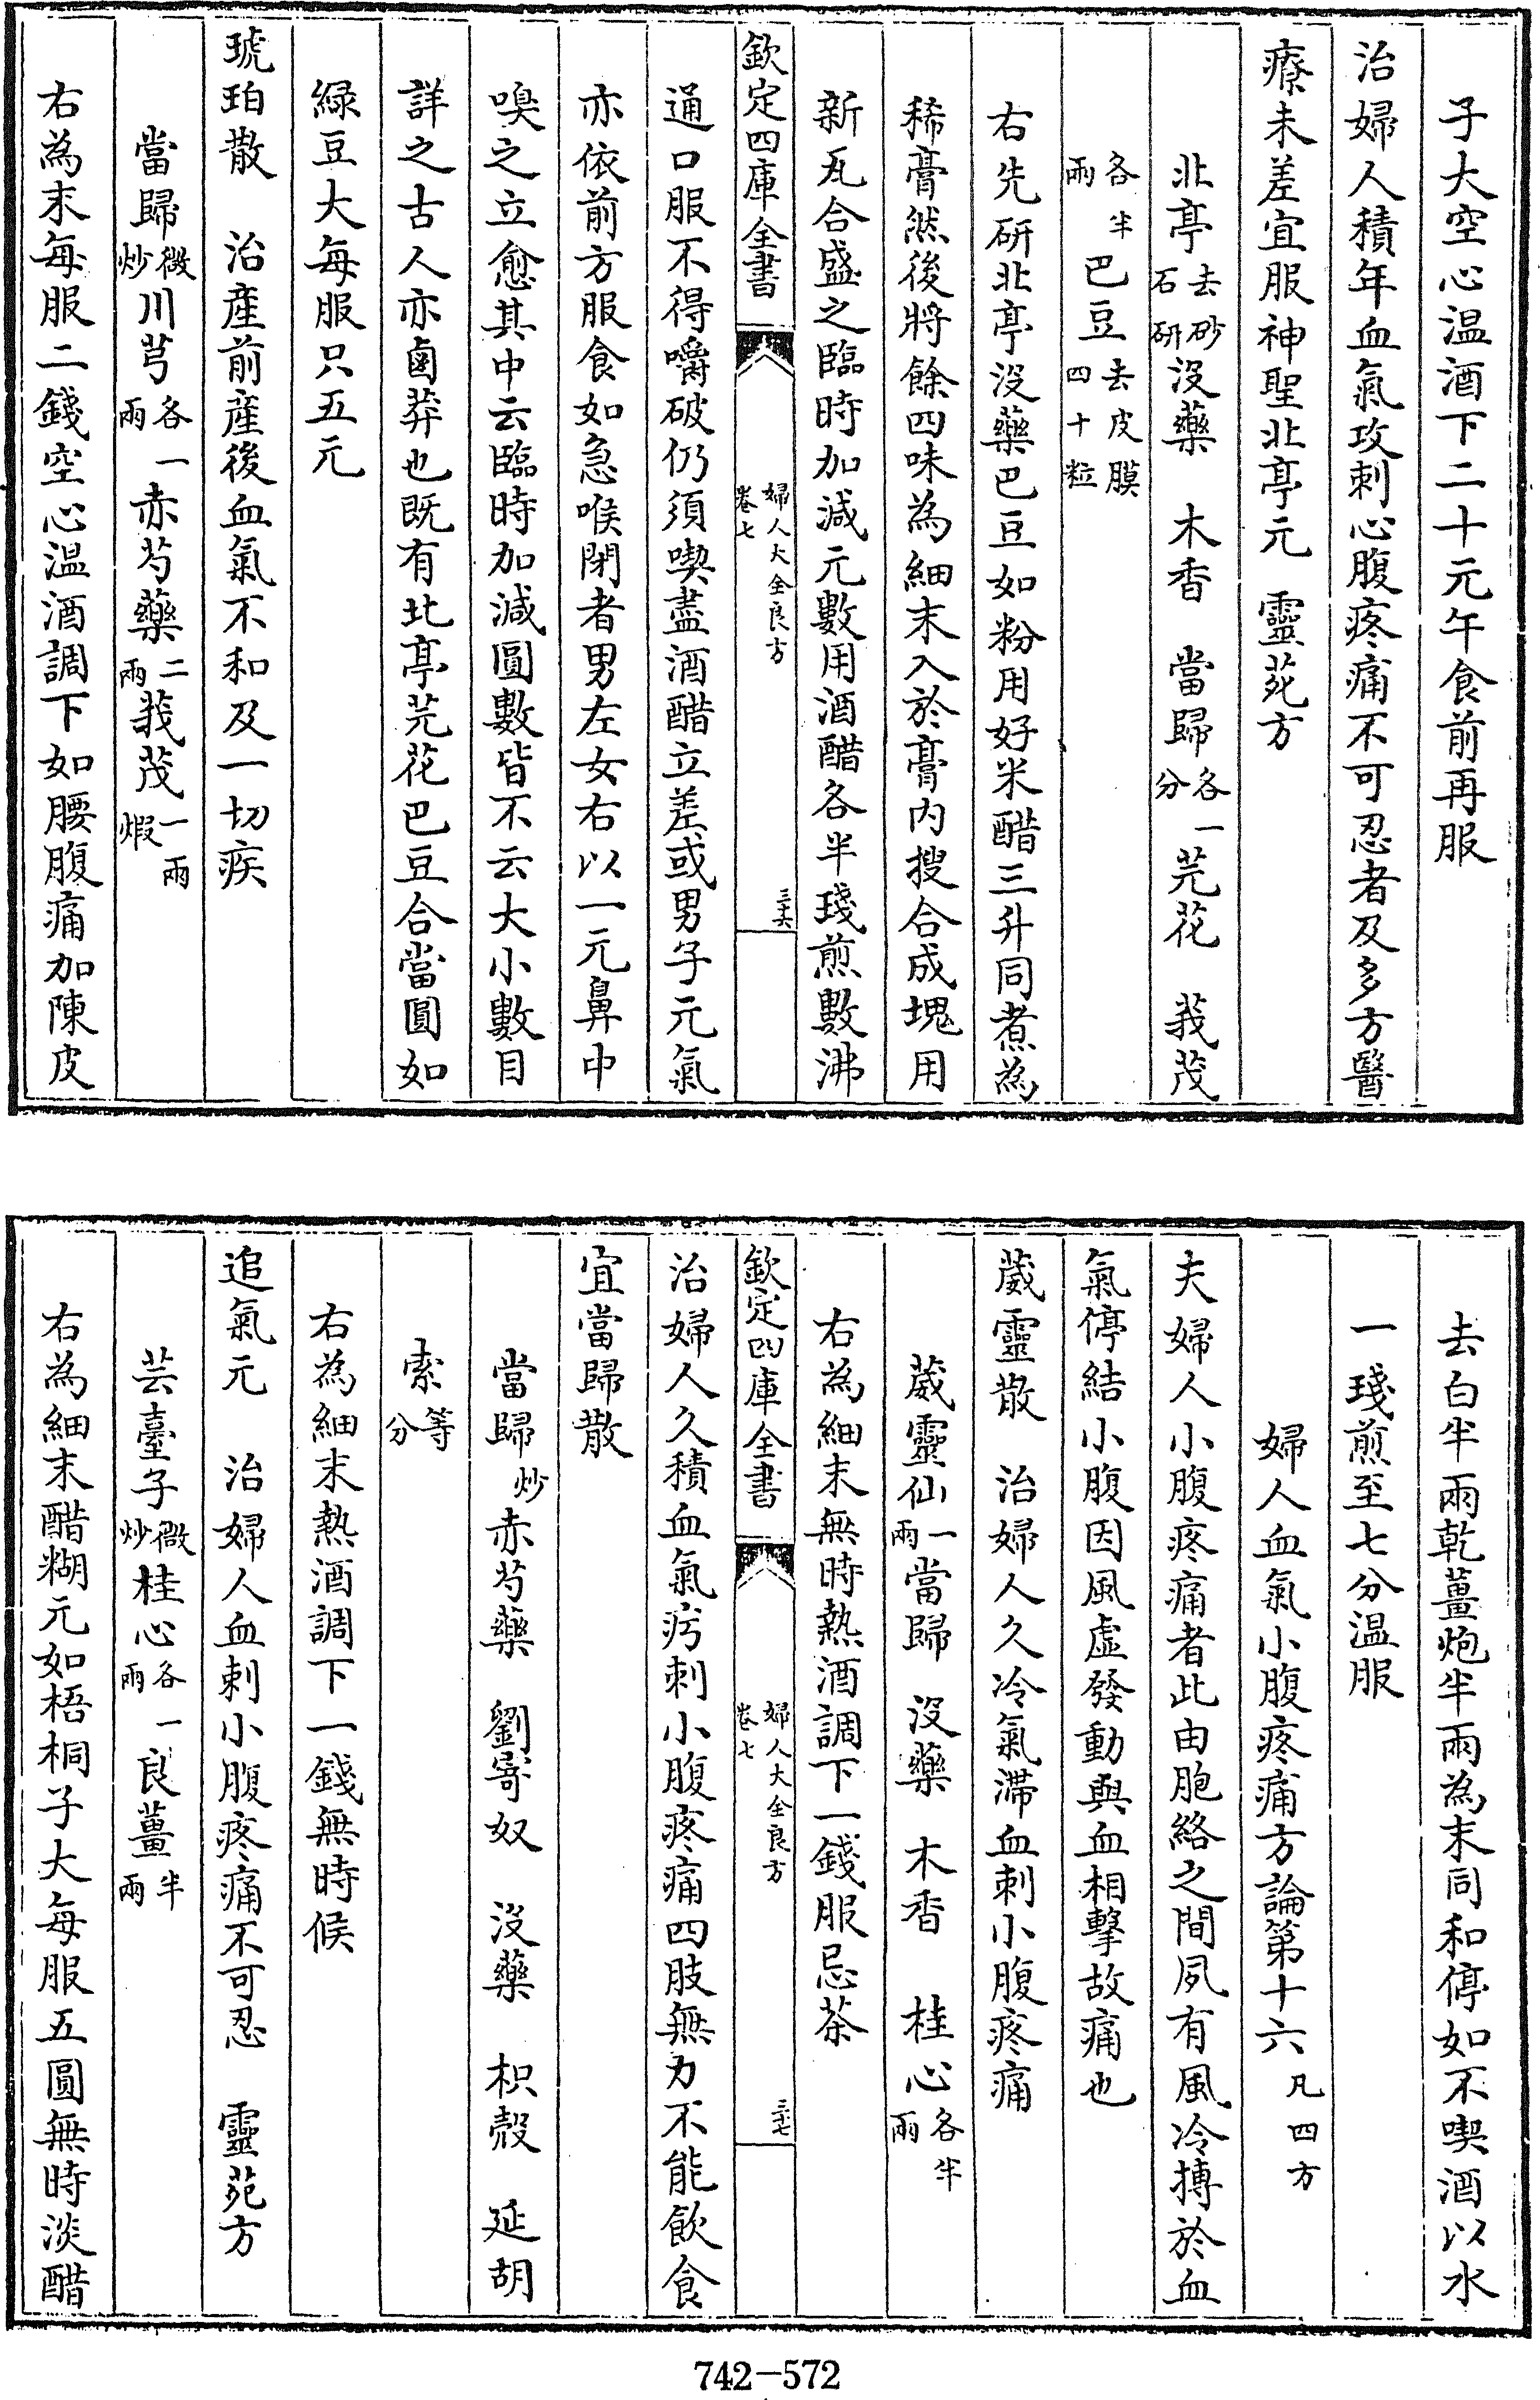 子大空心温酒下二十元午食前再服
治婦人積年血氣攻刺心腹疼痛不可忍者及多方醫
療未差宜服神聖北亭元 靈苑方
北亭去砂石研没藥 木香 當歸各一分芫花 莪茂
各半兩巴豆去皮膜四十粒
右先研北亭没藥巴豆如粉用好米醋三升同煮為
稀膏然後將餘四味為細末入於膏内搜合成塊用
新瓦合盛之臨時加減元數用酒醋各半琖煎數沸
欽定四庫全書 婦人大全良方 卷七 三十六
通口服不得嚼破仍須喫盡酒醋立差或男子元氣
亦依前方服食如急喉閉者男左女右以一元鼻中
嗅之立愈其中云臨時加減圓數皆不云大小數目
詳之古人亦鹵莽也既有北亭芫花巴豆合當圓如
緑豆大每服只五元
琥珀散 治産前産後血氣不和及一切疾
當歸微炒川芎各一兩赤芍藥二兩莪茂一兩煆
右為末每服二錢空心温酒調下如腰腹痛加陳皮
去白半兩乾薑炮半兩為末同和停如不喫酒以水
一琖煎至七分温服
婦人血氣小腹疼痛方論第十六凡四方
夫婦人小腹疼痛者此由胞絡之間夙有風冷搏於血
氣停結小腹因風虚發動與血相擊故痛也
葳靈散 治婦人久冷氣滯血刺小腹疼痛
葳靈仙一兩當歸 没藥 木香 桂心各半兩
右為細末無時熱酒調下一錢服忌茶
欽定四庫全書 婦人大全良方 卷七 三十七
治婦人久積血氣疠刺小腹疼痛四肢無力不能飲食
宜當歸散
當歸炒赤芍藥 劉寄奴 没藥 枳殻 延胡
索等分
右為細末熱酒調下一錢無時候
追氣元 治婦人血刺小腹疼痛不可忍 靈苑方
芸薹子微炒桂心各一兩良薑半兩
右為細末醋糊元如梧桐子大每服五圓無時淡醋
742-572